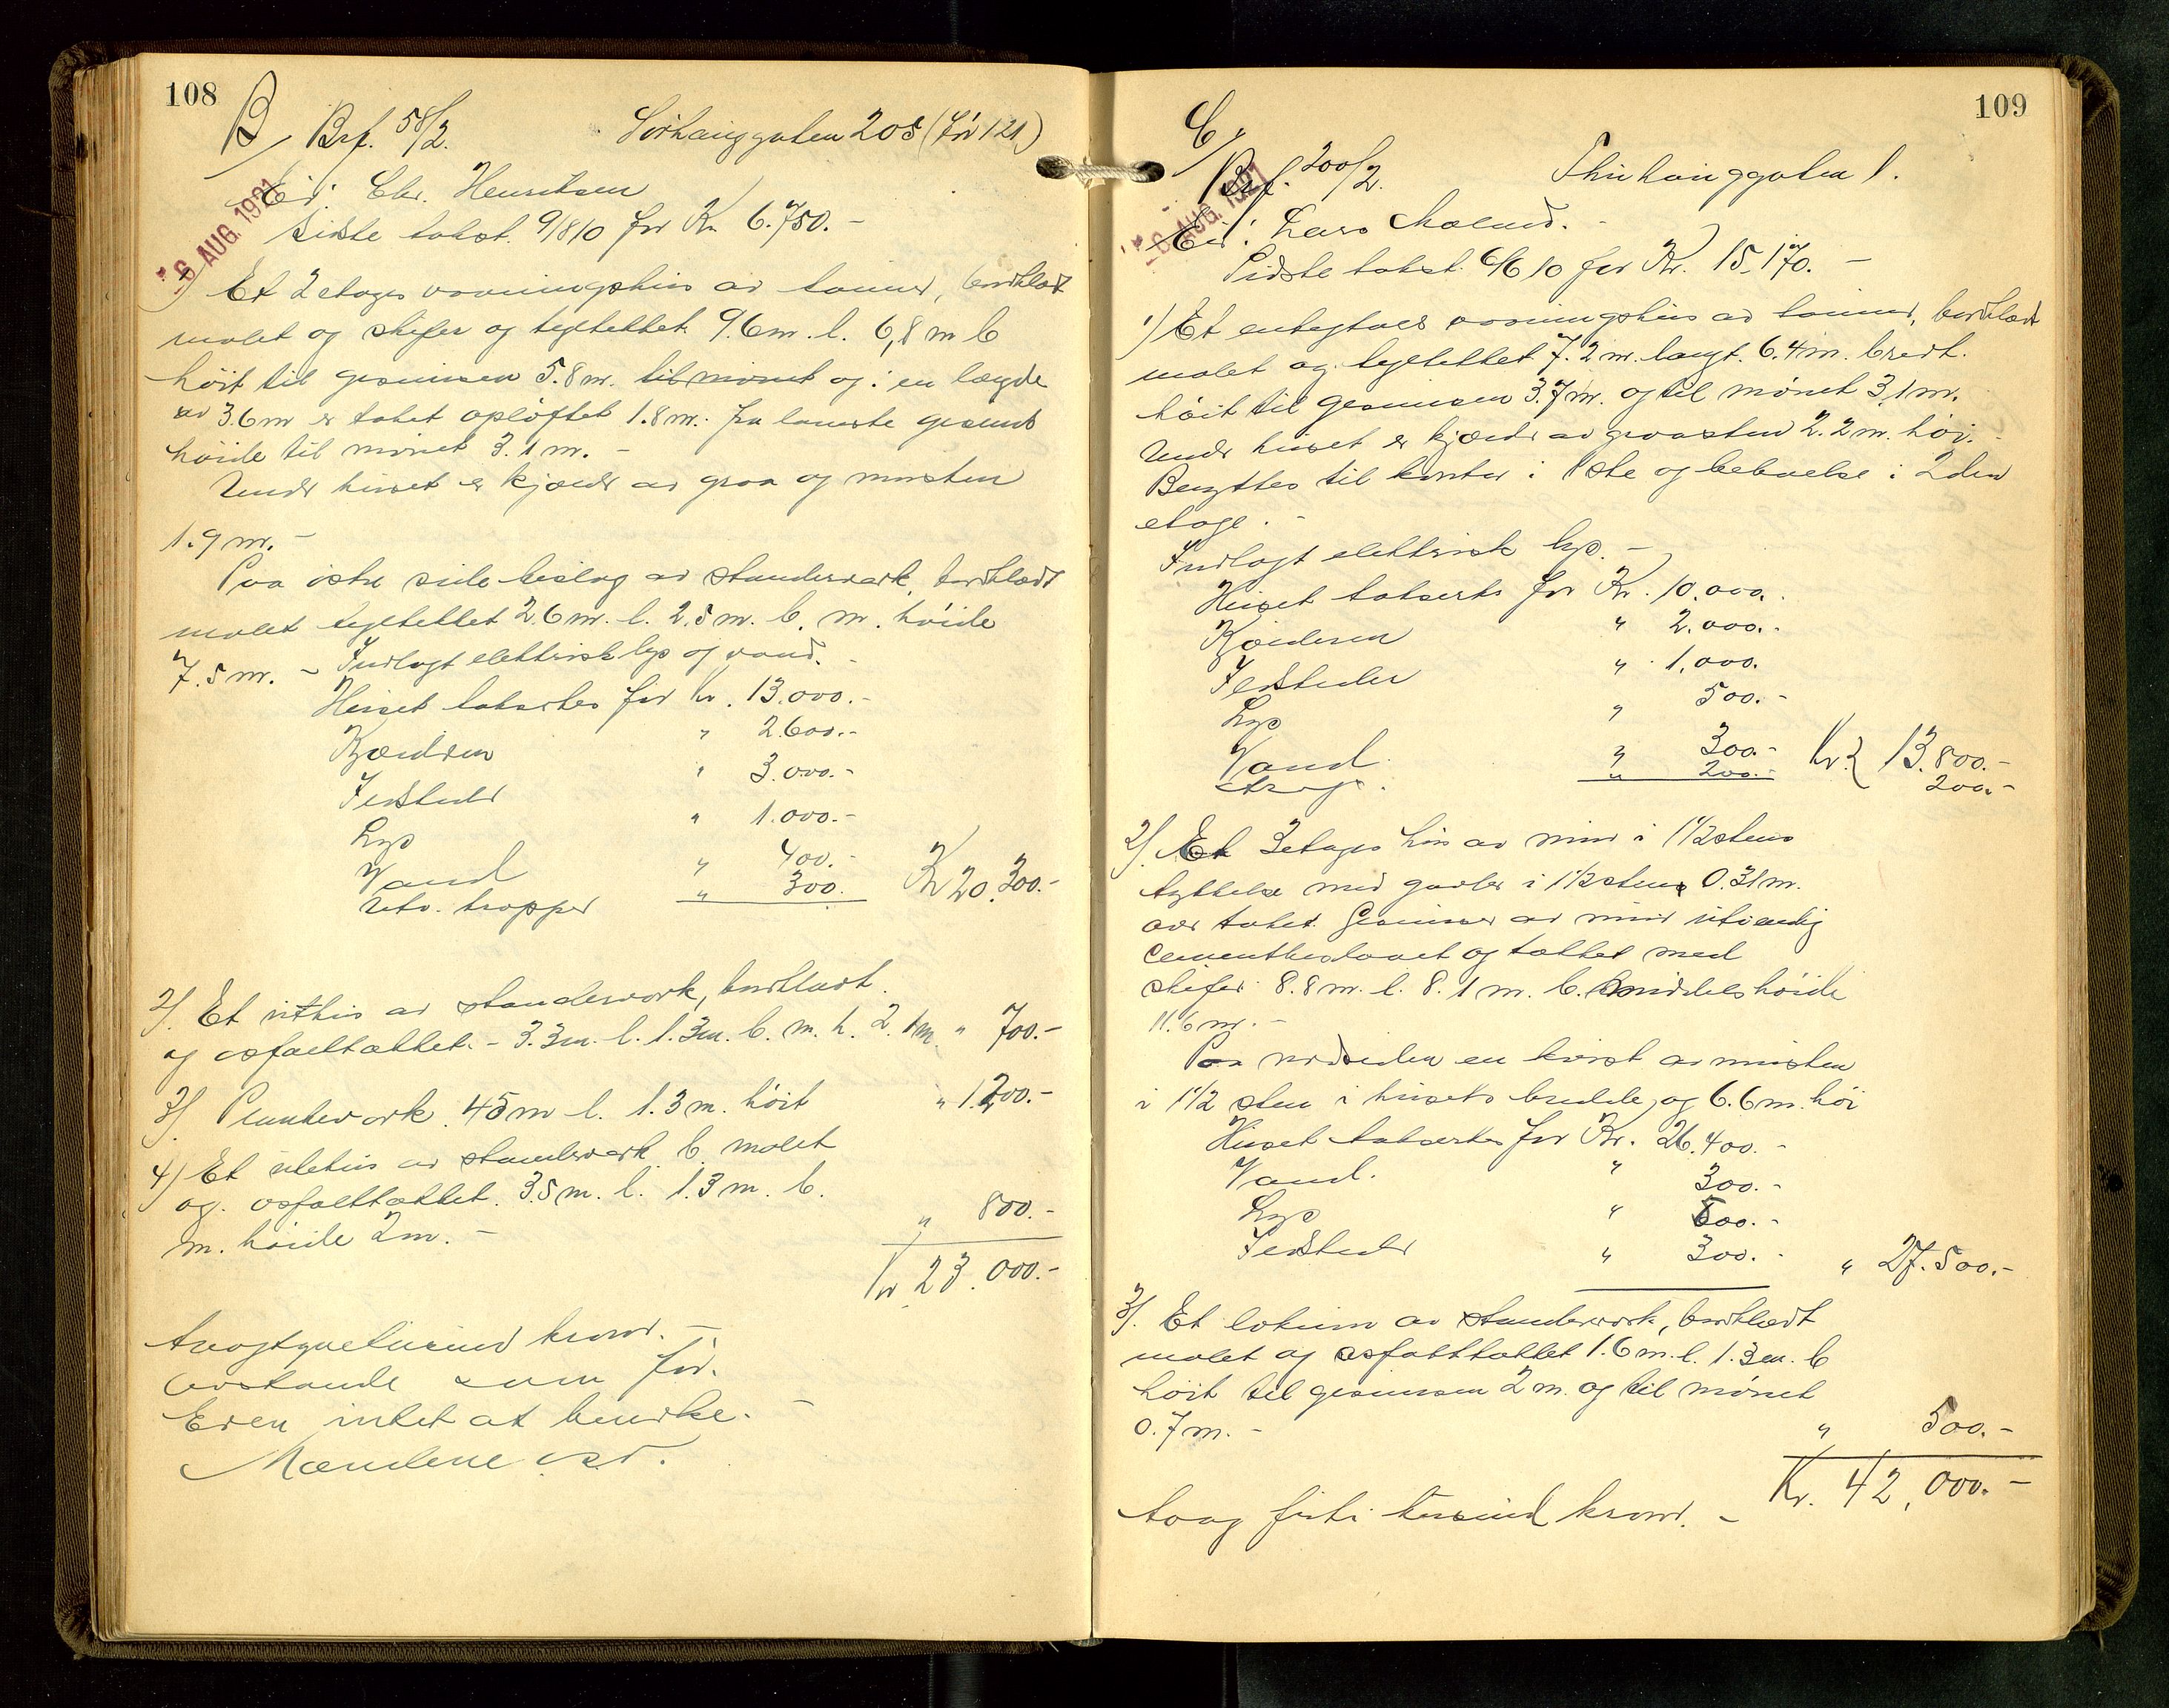 108
B/ Brf. 58/2. Sørhauggaten 205 (før 121)
Ei: Chr. Henriksen
Sidste takst. 9/8 10 for Kr. 6.750.-
- 6 AUG. 1921
1) Et 2 etages vaaningshus av tømmer, bordklædt
malet og skifer og tegltækket. 9.6 m. l. 6,8 m b
høit til gesimsen 5.8 m. til mønet og i en længde
av 3.6 m er taket opløftet 1.8 m. fra laveste gesims
høide til mønet 3.1 m. -
Under huset er kjælder av graa og mursten
1.9 m. -
Paa østre side beslag av standerværk, bordklædt
malet tegltækket 2.6 m. l. 2.5 m. b. m. høide
7.5 m. - Indlagt elektrisk lys og vand. -
Huset takseres for Kr. 13.000.-
Kjælderen " 2.600.-
Ildsteder " 3.000.-
Lys " 1.000.-
Vand " 400.-
Utv. trapper " 300. Kr 20.300.-
2). Et uthus av standerværk, bordklædt.
og asfalttækket. - 3.3 m. l. 1.3 m. b. m. h. 2.1 m. " 700.-
3). Plankeværk. 45 m l. 1.3 m. høit " 1.200.-
4) Et utehus av standerværk b. malet
og asfalttækket. 3.5 m. l. 1.3 m. b.
m. høide 2 m. - " 800.-
Kr 23.000.-
treogtyvetusind kroner. -
Avstande som før.
Eieren intet at bemerke. -
Mændene
109
C/
Brf. 200/2. Skihauggaten 1.
- 6 AUG. 1921
Ei: Lars Mælend. -
Sidste takst. 6/6 10 for Kr. 15.170. -
1) Et enetages vaaningshus av tømmer, bordklædt
malet og tegltækket 7.2 m. langt. 6.4 m. bredt.
høit til gesimsen 3.7 m. og til mønet 3.1 m.
Under huset er kjælder av graasten 2.2 m. høi. -
Benyttes til kontor i 1ste og bebuelse i 2den
etage. -
Indlagt elektrisk lys. -
Huset takserts for Kr. 10.000.
Kjælderen " 2.000.-
Ildsteder " 1.000.
Lys " 500.-
Vand " 300.- Kr. 13.800.-
" 200.- 200.-
2). Et 3 etages hus av mur i 1 1/2 stens
tykkelse med gavler i 1 1/2 stens 0.31 m.
over taket. Gesimser av mur utvendig
cementbeslaaet og tækket med
skifer. 8.8 m. l. 8.1 m. b. middels høide
11.6 m. -
Paa nordsiden en kvist av mursten
i 1 1/2 sten i husets bredde og 6.6 m. høi
Huset takseres for Kr. 26.400.-
Vand. " 300.-
Lys " 500.-
Ildsteder " 300.- " 27.500.-
3). Et lokum av standerværk, bordklædt
malet og asfalttækket 1.6 m. l. 1.3 m. b
høit til gesimsen 2 m. og til mønet
0.7 m. - " 500.-
Kr. 42.000.-
toog firti tusind kroner. -